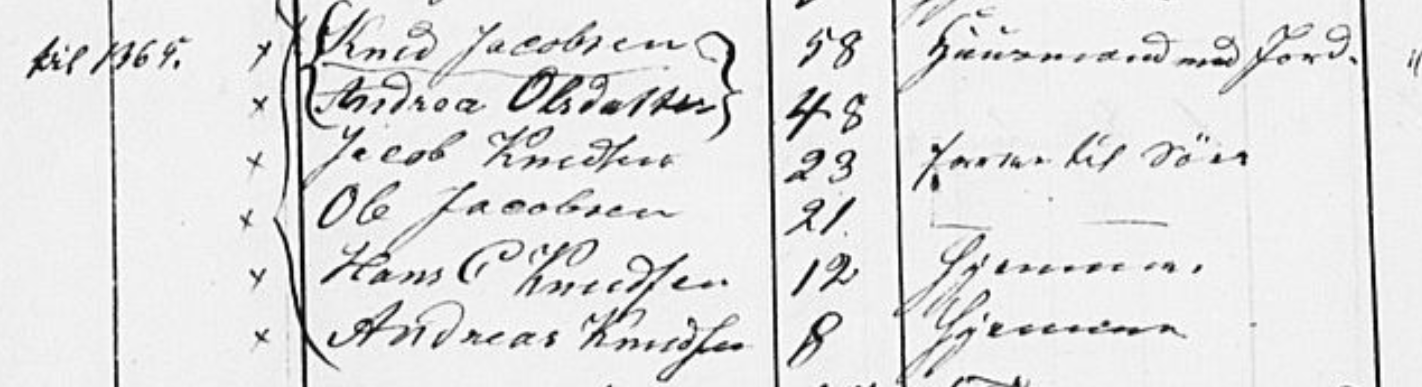 til 1865. × Knud Jacobsen 58 Huusmand med Jord. "
× Andrea Olsdatter 48
× Jacob Knudsen 23 farer til Söes
× Ole Jacobsen 21. — —
× Hans C Knudsen 12 Hjemme.
× Andreas Knudsen 8 Hjemme